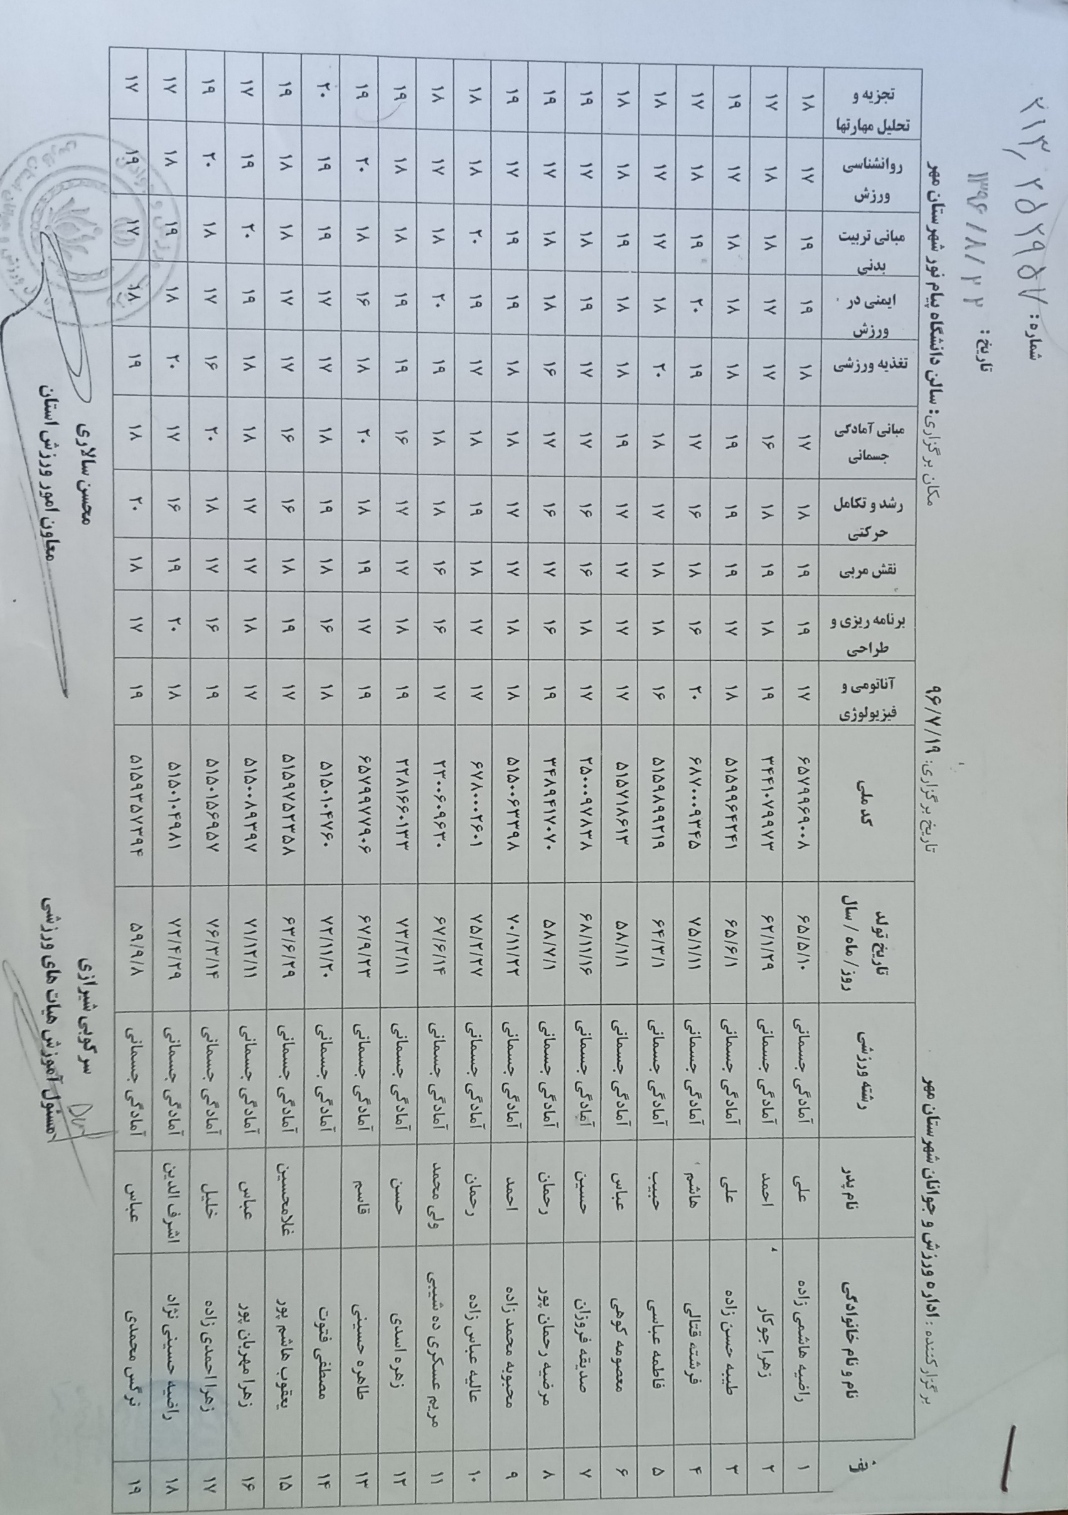 شماره: ۲۱۳٫۲۵۲۹۵۷
تاریخ: ۱۳۹۶/۸/۲۲
برگزار کننده: اداره ورزش و جوانان شهرستان مهر تاریخ برگزاری: ۹۶/۷/۱۹ مکان برگزاری: سالن دانشگاه پیام نور شهرستان مهر
نام و نام خانوادگی نام پدر رشته ورزشی تاریخ تولد روز / ماه / سال کد ملی آناتومی و فیزیولوژی برنامه ریزی و طراحی نقش مربی رشد و تکامل حرکتی مبانی آمادگی جسمانی تغذیه ورزشی ایمنی در ورزش مبانی تربیت بدنی روانشناسی ورزش تجزیه و تحلیل مهارتها
۱ راضیه هاشمی زاده علی آمادگی جسمانی ۶۵/۵/۱۰ ۶۵۷۹۹۶۹۰۰۸ ۱۷ ۱۹ ۱۹ ۱۸ ۱۷ ۱۸ ۱۹ ۱۹ ۱۷ ۱۸
۲ زهرا جوکار احمد آمادگی جسمانی ۶۲/۱/۲۹ ۳۴۴۱۰۷۹۹۷۳ ۱۹ ۱۸ ۱۹ ۱۸ ۱۶ ۱۷ ۱۷ ۱۸ ۱۸ ۱۷
۳ طیبه حسن زاده علی آمادگی جسمانی ۶۵/۶/۱ ۵۱۵۹۹۶۴۲۴۱ ۱۸ ۱۷ ۱۹ ۱۹ ۱۹ ۱۸ ۱۸ ۱۸ ۱۷ ۱۹
۴ فرشته قتالی هاشم آمادگی جسمانی ۷۵/۱/۱۱ ۶۸۷۰۰۰۹۳۴۵ ۲۰ ۱۶ ۱۸ ۱۶ ۱۷ ۱۹ ۲۰ ۱۹ ۱۸ ۱۷
۵ فاطمه عباسی حبیب آمادگی جسمانی ۶۴/۳/۱ ۵۱۵۹۸۹۹۲۱۹ ۱۶ ۱۸ ۱۸ ۱۷ ۱۸ ۲۰ ۱۸ ۱۷ ۱۷ ۱۸
۶ معصومه کوهی عباس آمادگی جسمانی ۵۸/۱/۱ ۵۱۵۷۱۸۶۱۳ ۱۷ ۱۷ ۱۷ ۱۷ ۱۹ ۱۸ ۱۸ ۱۹ ۱۸ ۱۸
۷ صدیقه فروزان حسین آمادگی جسمانی ۶۸/۱۱/۱۶ ۲۵۰۰۰۹۷۸۳۸ ۱۷ ۱۸ ۱۶ ۱۶ ۱۷ ۱۷ ۱۹ ۱۸ ۱۷ ۱۹
۸ مرضیه رحمان پور رحمان آمادگی جسمانی ۵۸/۷/۱ ۳۴۸۹۴۱۷۰۷۰ ۱۹ ۱۶ ۱۷ ۱۶ ۱۷ ۱۶ ۱۸ ۱۸ ۱۷ ۱۹
۹ محبوبه محمد زاده احمد آمادگی جسمانی ۷۰/۱۱/۲۲ ۵۱۵۰۰۶۳۳۹۸ ۱۸ ۱۸ ۱۷ ۱۷ ۱۸ ۱۸ ۱۹ ۱۹ ۱۷ ۱۹
۱۰ عالیه عباس زاده رحمان آمادگی جسمانی ۷۵/۲/۲۷ ۶۷۸۰۰۰۲۶۰۱ ۱۷ ۱۷ ۱۸ ۱۹ ۱۸ ۱۷ ۱۹ ۲۰ ۱۸ ۱۸
۱۱ مریم عسکری ده شیبی ولی محمد آمادگی جسمانی ۶۷/۶/۱۴ ۲۳۰۰۶۰۹۶۳۰ ۱۷ ۱۶ ۱۶ ۱۸ ۱۸ ۱۹ ۲۰ ۱۸ ۱۷ ۱۸
۱۲ زهره اسدی حسن آمادگی جسمانی ۷۳/۲/۱۱ ۲۲۸۱۶۶۰۱۳۳ ۱۹ ۱۸ ۱۷ ۱۷ ۱۶ ۱۹ ۱۹ ۱۸ ۱۸ ۱۹
۱۳ طاهره حسینی قاسم آمادگی جسمانی ۶۷/۹/۲۳ ۶۵۷۹۹۷۷۹۰۶ ۱۹ ۱۷ ۱۹ ۱۸ ۲۰ ۱۸ ۱۶ ۱۸ ۲۰ ۱۹
۱۴ مصطفی فتوت آمادگی جسمانی ۷۲/۱۱/۲۰ ۵۱۵۰۱۰۴۷۶۰ ۱۸ ۱۶ ۱۸ ۱۹ ۱۸ ۱۷ ۱۷ ۱۹ ۱۹ ۲۰
۱۵ یعقوب هاشم پور غلامحسین آمادگی جسمانی ۶۳/۶/۲۹ ۵۱۵۹۷۵۲۳۵۸ ۱۷ ۱۹ ۱۸ ۱۶ ۱۶ ۱۷ ۱۷ ۱۸ ۱۸ ۱۹
۱۶ زهرا مهربان پور عباس آمادگی جسمانی ۷۱/۱۲/۱۱ ۵۱۵۰۰۸۹۳۹۷ ۱۷ ۱۸ ۱۷ ۱۷ ۱۸ ۱۸ ۱۹ ۲۰ ۱۹ ۱۷
۱۷ زهرا احمدی زاده خلیل آمادگی جسمانی ۷۶/۳/۱۴ ۵۱۵۰۱۵۶۹۵۷ ۱۹ ۱۶ ۱۷ ۱۸ ۲۰ ۱۶ ۱۷ ۱۸ ۲۰ ۱۹
۱۸ راضیه حسینی نژاد اشرف الدین آمادگی جسمانی ۷۲/۴/۲۹ ۵۱۵۰۱۰۴۹۸۱ ۱۸ ۲۰ ۱۹ ۱۶ ۱۷ ۲۰ ۱۸ ۱۹ ۱۸ ۱۷
۱۹ نرگس محمدی عباس آمادگی جسمانی ۵۹/۹/۸ ۵۱۵۹۳۵۷۳۹۴ ۱۹ ۱۷ ۱۸ ۲۰ ۱۸ ۱۹ ۱۸ ۱۷ ۱۹ ۱۷
سرکوبی شیرازی محسن سالاری
مسئول آموزش هیات های ورزشی معاون امور ورزش استان